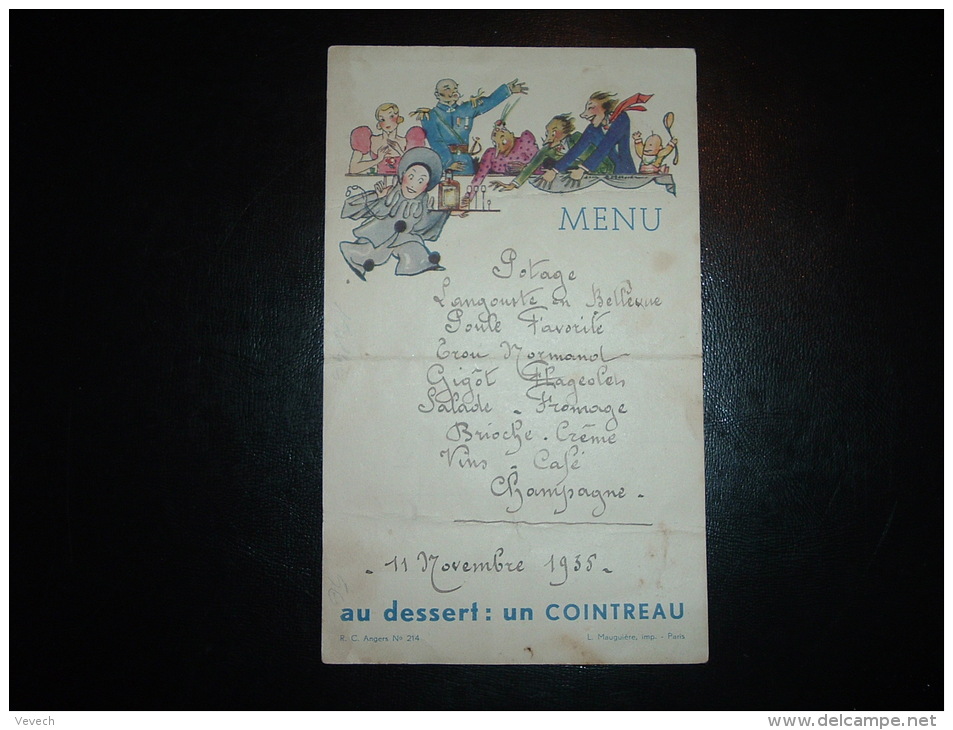 MENU
Potage
Langouste en Bellevue
Poule Favorite
Trou Normand
Gigôt Flageolets
Salade - Fromage
Brioche - Crême
Vins - Café
Champagne -
- 11 Novembre 1935 -
au dessert: un COINTREAU
R. C. Angers No 214
L. Mauguière, imp. - Paris
Vevech
www.delcampe.net